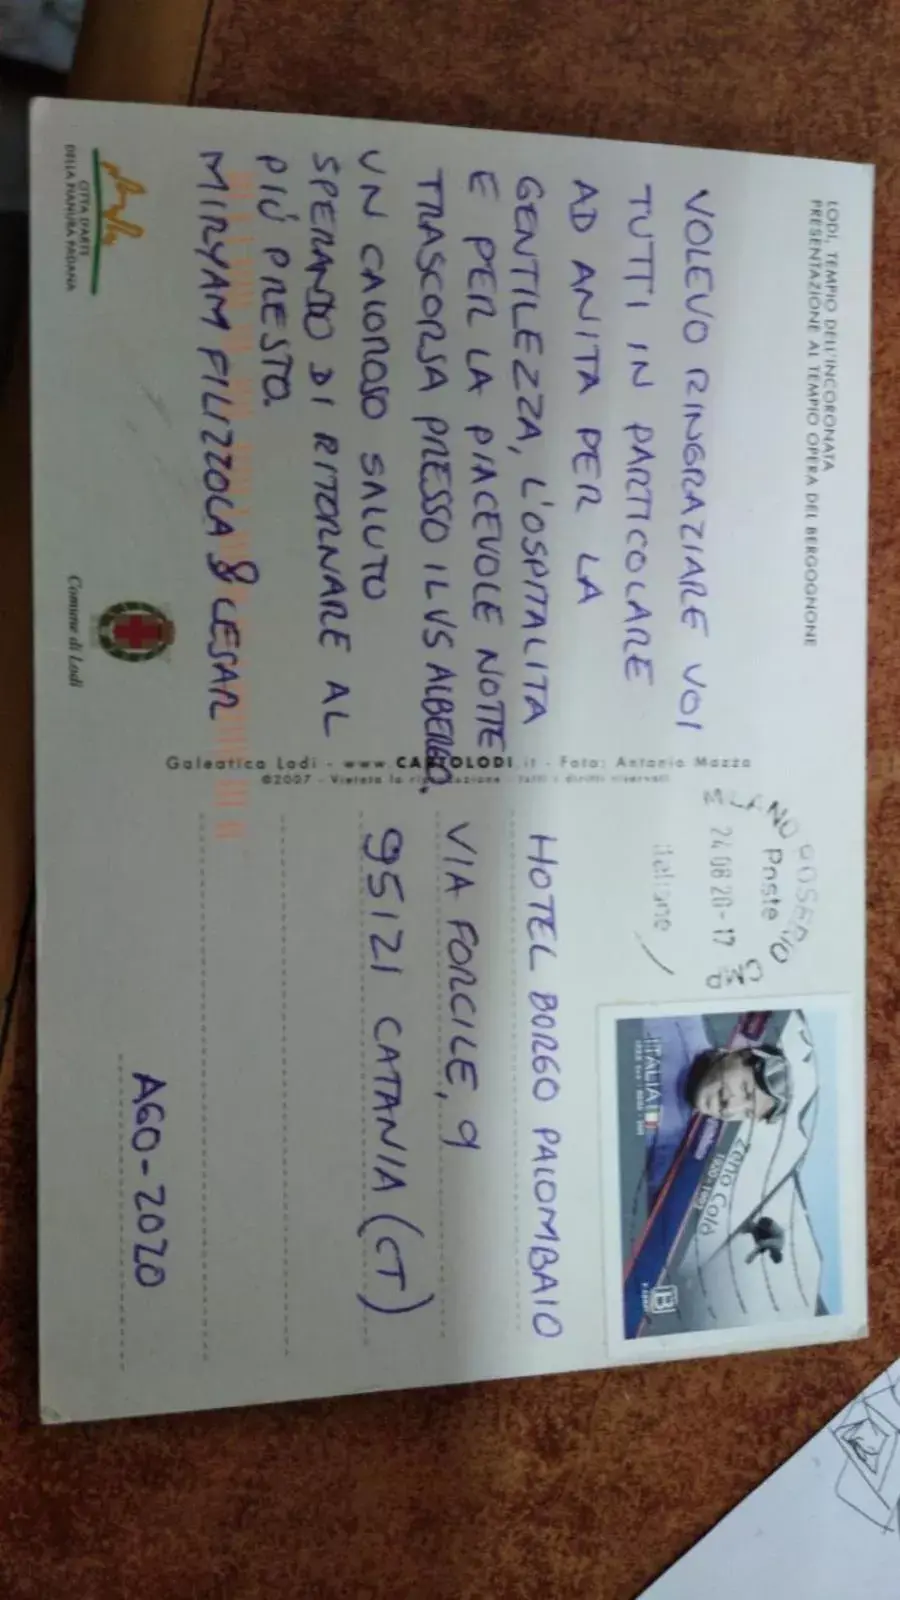 LODI, TEMPIO DELL'INCORONATA
PRESENTAZIONE AL TEMPIO OPERA DEL BERGOGNONE
VOLEVO RINGRAZIARE VOI
TUTTI IN PARTICOLARE
AD ANITA PER LA
GENTILEZZA, L'OSPITALITA
E PER LA PIACEVOLE NOTTE
TRASCORSA PRESSO IL VS ALBERGO.
UN CALOROSO SALUTO
SPERANDO DI RITORNARE AL
PIÚ PRESTO.
MIRYAM FILIZZOLA & CESAR
CITTÀ D'ARTE
DELLA PIANURA PADANA
Comune di Lodi
Galeatica Lodi - www.CARTOLODI.it - Foto: Antonio Mazza
©2007 - Vietata la riproduzione - tutti i diritti riservati
MILANO ROSERIO
Poste
24 08 20-17
CMP
italiane
ITALIA
Zeno Colò
1920-1993
B
HOTEL BORGO PALOMBAIO
VIA FORCILE, 9
95121 CATANIA (CT)
AGO-2020